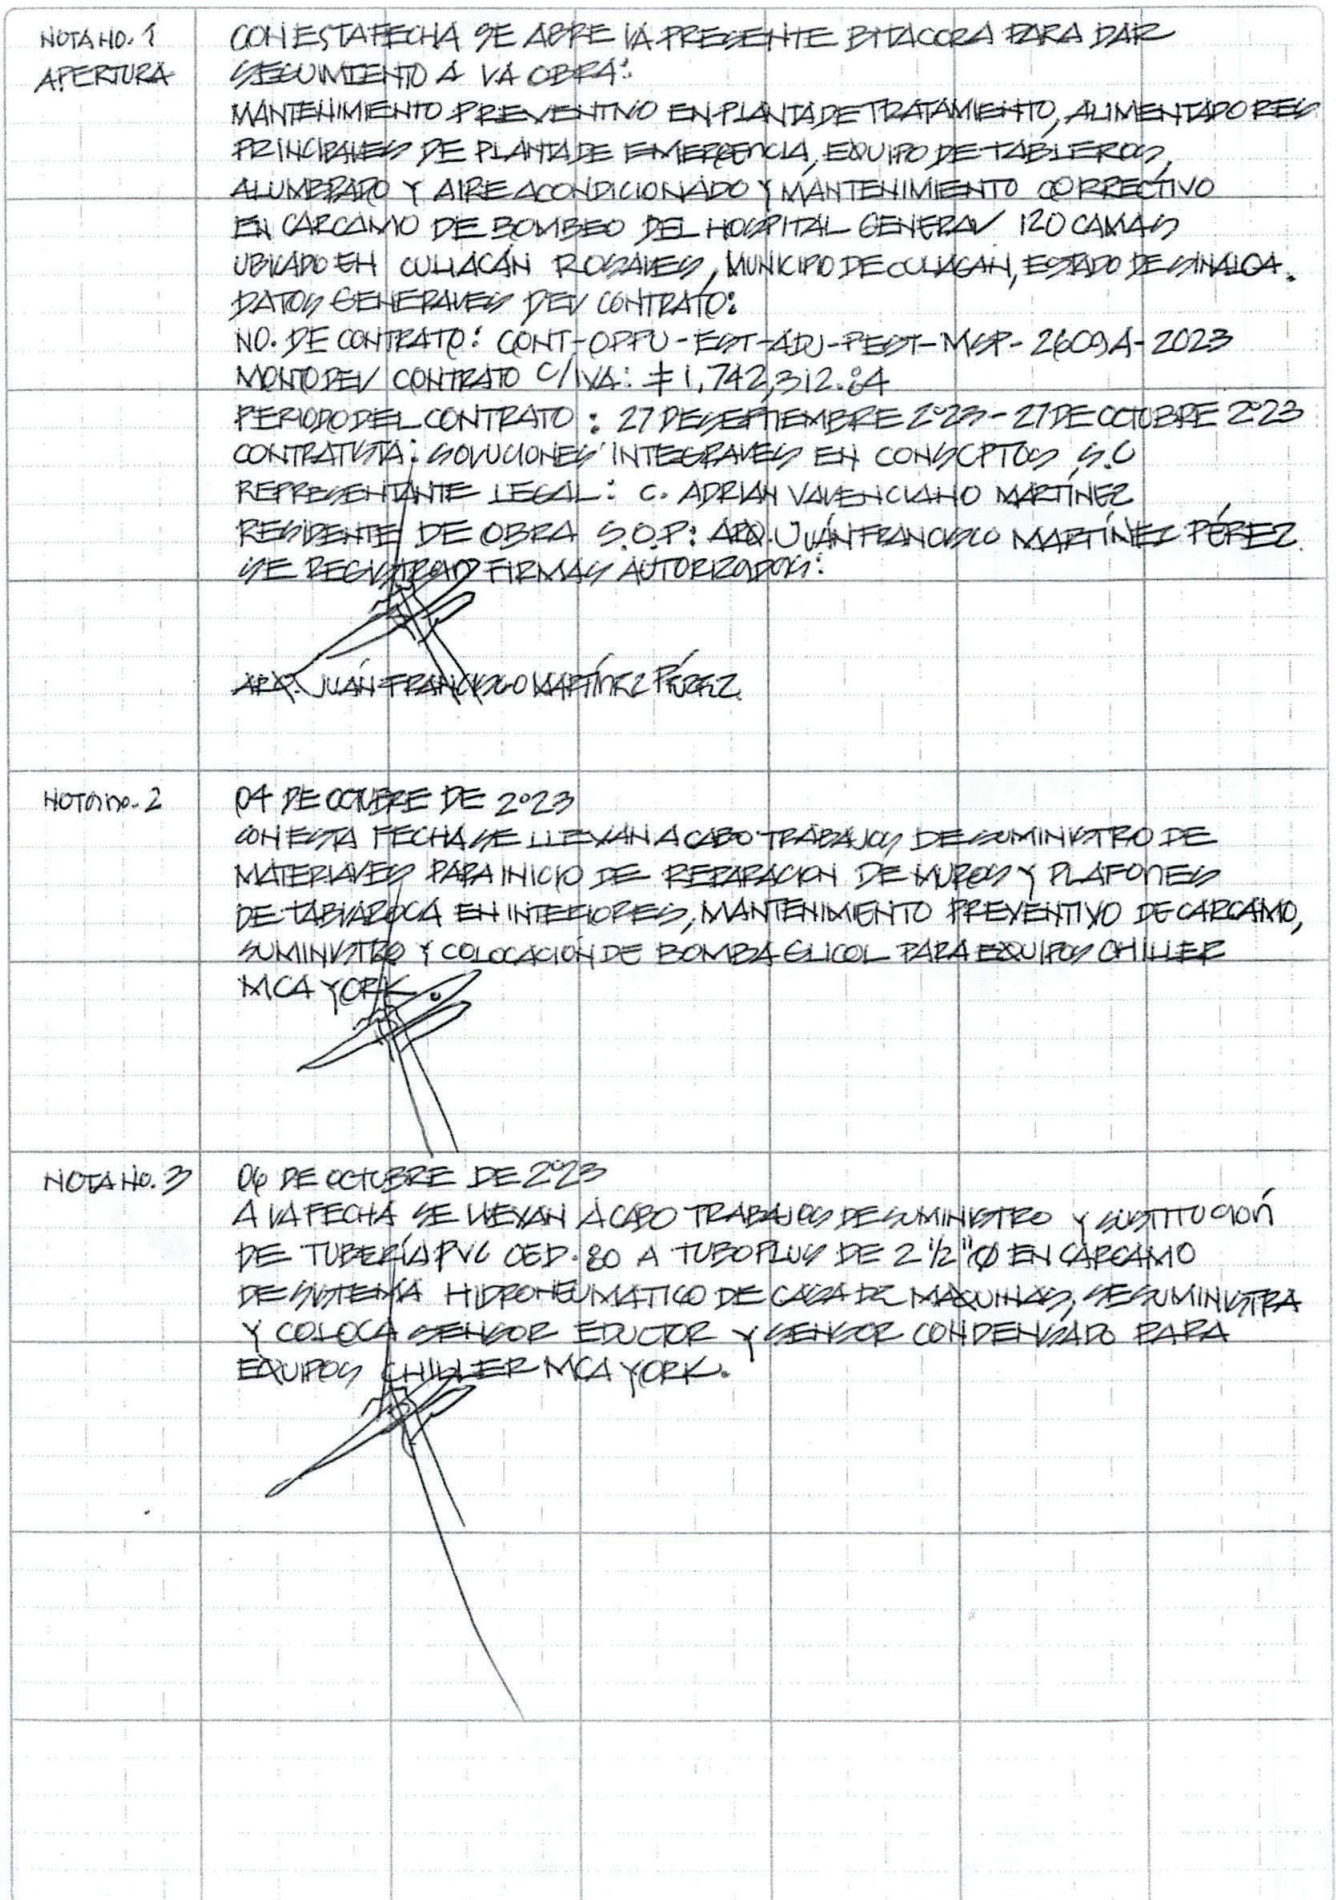 NOTA NO. 1
APERTURA
CON ESTA FECHA SE ABRE LA PRESENTE BITACORA PARA DAR
SEGUIMIENTO A LA OBRA:
MANTENIMIENTO PREVENTIVO EN PLANTA DE TRATAMIENTO, ALIMENTADORES
PRINCIPALES DE PLANTA DE EMERGENCIA, EQUIPO DE TABLEROS,
ALUMBRADO Y AIRE ACONDICIONADO Y MANTENIMIENTO CORRECTIVO
EN CARCAMO DE BOMBEO DEL HOSPITAL GENERAL 120 CAMAS
UBICADO EN CULIACÁN ROSALES, MUNICIPIO DE CULIACAN, ESTADO DE SINALOA.
DATOS GENERALES DEL CONTRATO:
NO. DE CONTRATO: CONT-OPPU-EST-ADJ-PEST-MSP-2609A-2023
MONTO DEL CONTRATO C/IVA: $1,742,312.84
PERIODO DEL CONTRATO: 27 DE SEPTIEMBRE 2023 - 27 DE OCTUBRE 2023
CONTRATISTA: SOLUCIONES INTEGRALES EN CONSCPTOS S.C
REPRESENTANTE LEGAL: C. ADRIAN VALENCIANO MARTÍNEZ
RESIDENTE DE OBRA S.O.P: ARQ. JUÁN FRANCISCO MARTÍNEZ PÉREZ.
SE REGISTRAN FIRMAS AUTORIZADAS:
ARQ. JUÁN FRANCISCO MARTÍNEZ PÉREZ.
NOTA no. 2
04 DE OCTUBRE DE 2023
CON ESTA FECHA SE LLEVAN A CABO TRABAJOS DE SUMINISTRO DE
MATERIALES PARA INICIO DE REPARACION DE MUROS Y PLAFONES
DE TABLAROCA EN INTERIORES, MANTENIMIENTO PREVENTIVO DE CARCAMO,
SUMINISTRO Y COLOCACIÓN DE BOMBA GLICOL PARA EQUIPOS CHILLER
MCA YORK.
NOTA NO. 3
06 DE OCTUBRE DE 2023
A LA FECHA SE LLEVAN A CABO TRABAJOS DE SUMINISTRO Y SUSTITUCIÓN
DE TUBERÍA PVC CED. 80 A TUBOPLUS DE 2 1/2"Ø EN CÁRCAMO
DE SISTEMA HIDRONEUMATICO DE CASA DE MAQUINAS, SE SUMINISTRA
Y COLOCA SENSOR EDUCTOR Y SENSOR CONDENSADO PARA
EQUIPOS CHILLER MCA YORK.